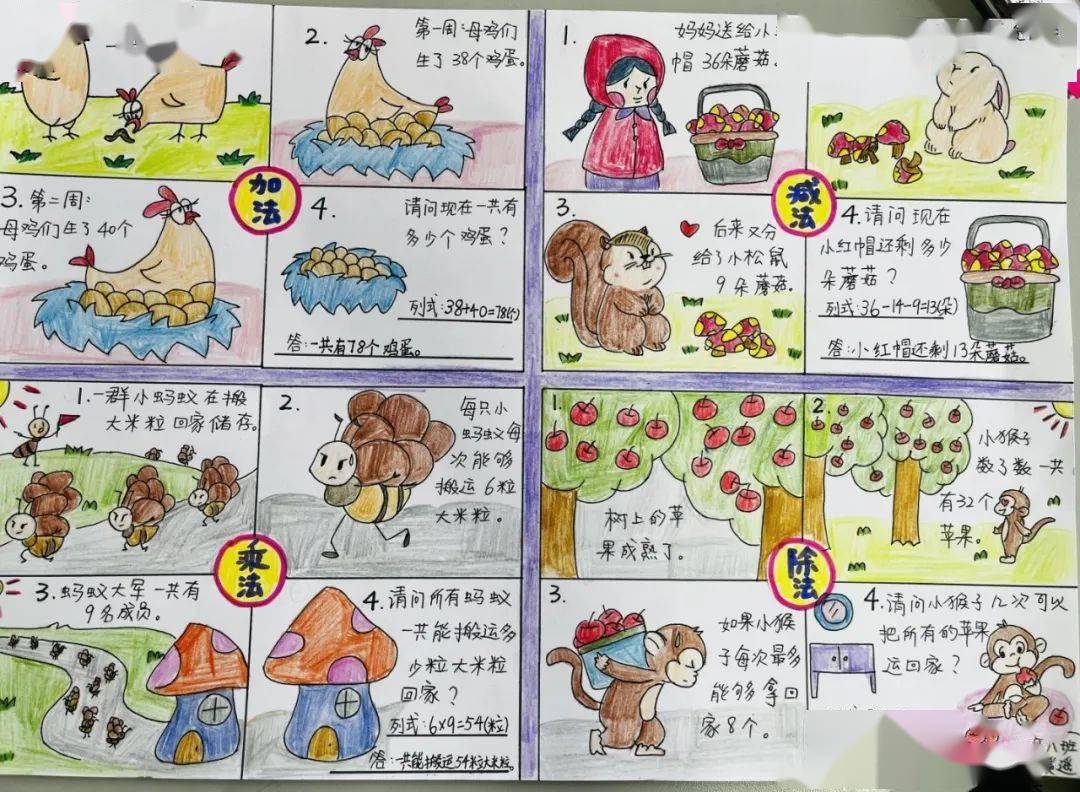 2.
第一周:母鸡们
生了38个鸡蛋。
3.第二周:
母鸡们生了40个
鸡蛋。
加法
4.
请问现在一共有
多少个鸡蛋?
列式:38+40=78(个)
答:一共有78个鸡蛋。
1.
妈妈送给小
帽36朵蘑菇.
3.
后来又分
给了小松鼠
9朵蘑菇。
减法
4.请问现在
小红帽还剩多少
朵蘑菇?
列式:36-14-9=13(朵)
答:小红帽还剩13朵蘑菇。
1.一群小蚂蚁在搬
大米粒回家储存。
2.
每只小
蚂蚁每
次能够
搬运6粒
大米粒。
乘法
3.蚂蚁大军一共有
9名成员。
4.请问所有蚂蚁
一共能搬运多
少粒大米粒
回家?
列式:6×9=54(粒)
答:一共能搬运54粒大米粒。
1.
树上的苹
果成熟了。
2.
小猴子
数了数一共
有32个
苹果。
除法
3.
如果小猴
子每次最多
能够拿回
家8个。
4.请问小猴子几次可以
把所有的苹果
运回家?
八班
遥